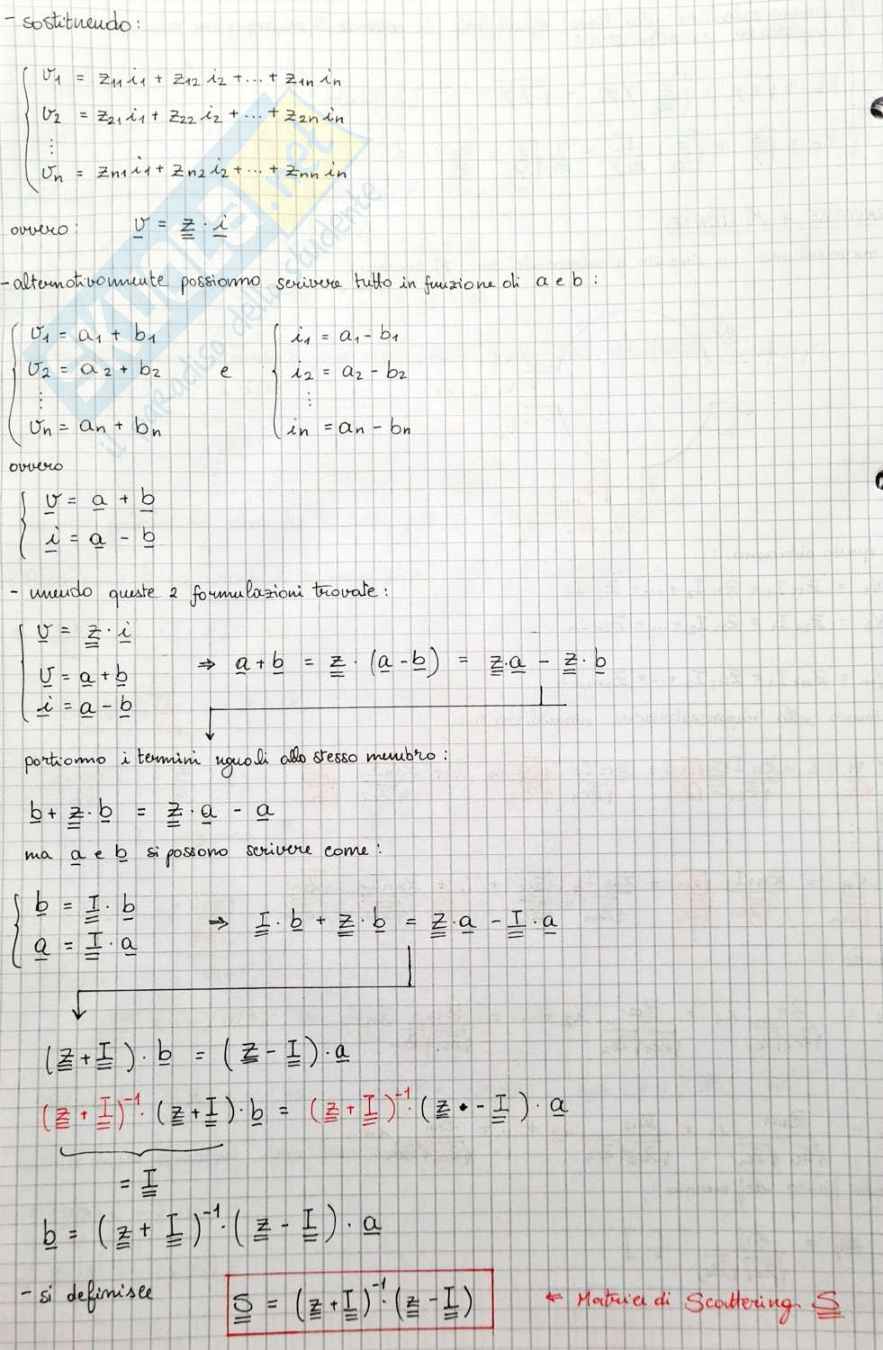 - sostituendo:
v1 = z11 i1 + z12 i2 + ... + z1n in
v2 = z21 i1 + z22 i2 + ... + z2n in
⋮
vn = zn1 i1 + zn2 i2 + ... + znn in
ovvero: v = z · i
- alternativamente possiamo scrivere tutto in funzione di a e b :
v1 = a1 + b1 e i1 = a1 - b1
v2 = a2 + b2 i2 = a2 - b2
⋮ ⋮
vn = an + bn in = an - bn
ovvero
v = a + b
i = a - b
- unendo queste 2 formulazioni trovate:
v = z · i
v = a + b ⇒ a + b = z · (a - b) = z · a - z · b
i = a - b
portiamo i termini uguali allo stesso membro:
b + z · b = z · a - a
ma a e b si possono scrivere come:
b = I · b ⇒ I · b + z · b = z · a - I · a
a = I · a
(z + I) · b = (z - I) · a
(z + I)⁻¹ · (z + I) · b = (z + I)⁻¹ · (z • - I) · a
= I
b = (z + I)⁻¹ · (z - I) · a
- si definisce S = (z + I)⁻¹ · (z - I) ← Matrice di Scattering S
SKUOLA.net
il paradiso dello studente